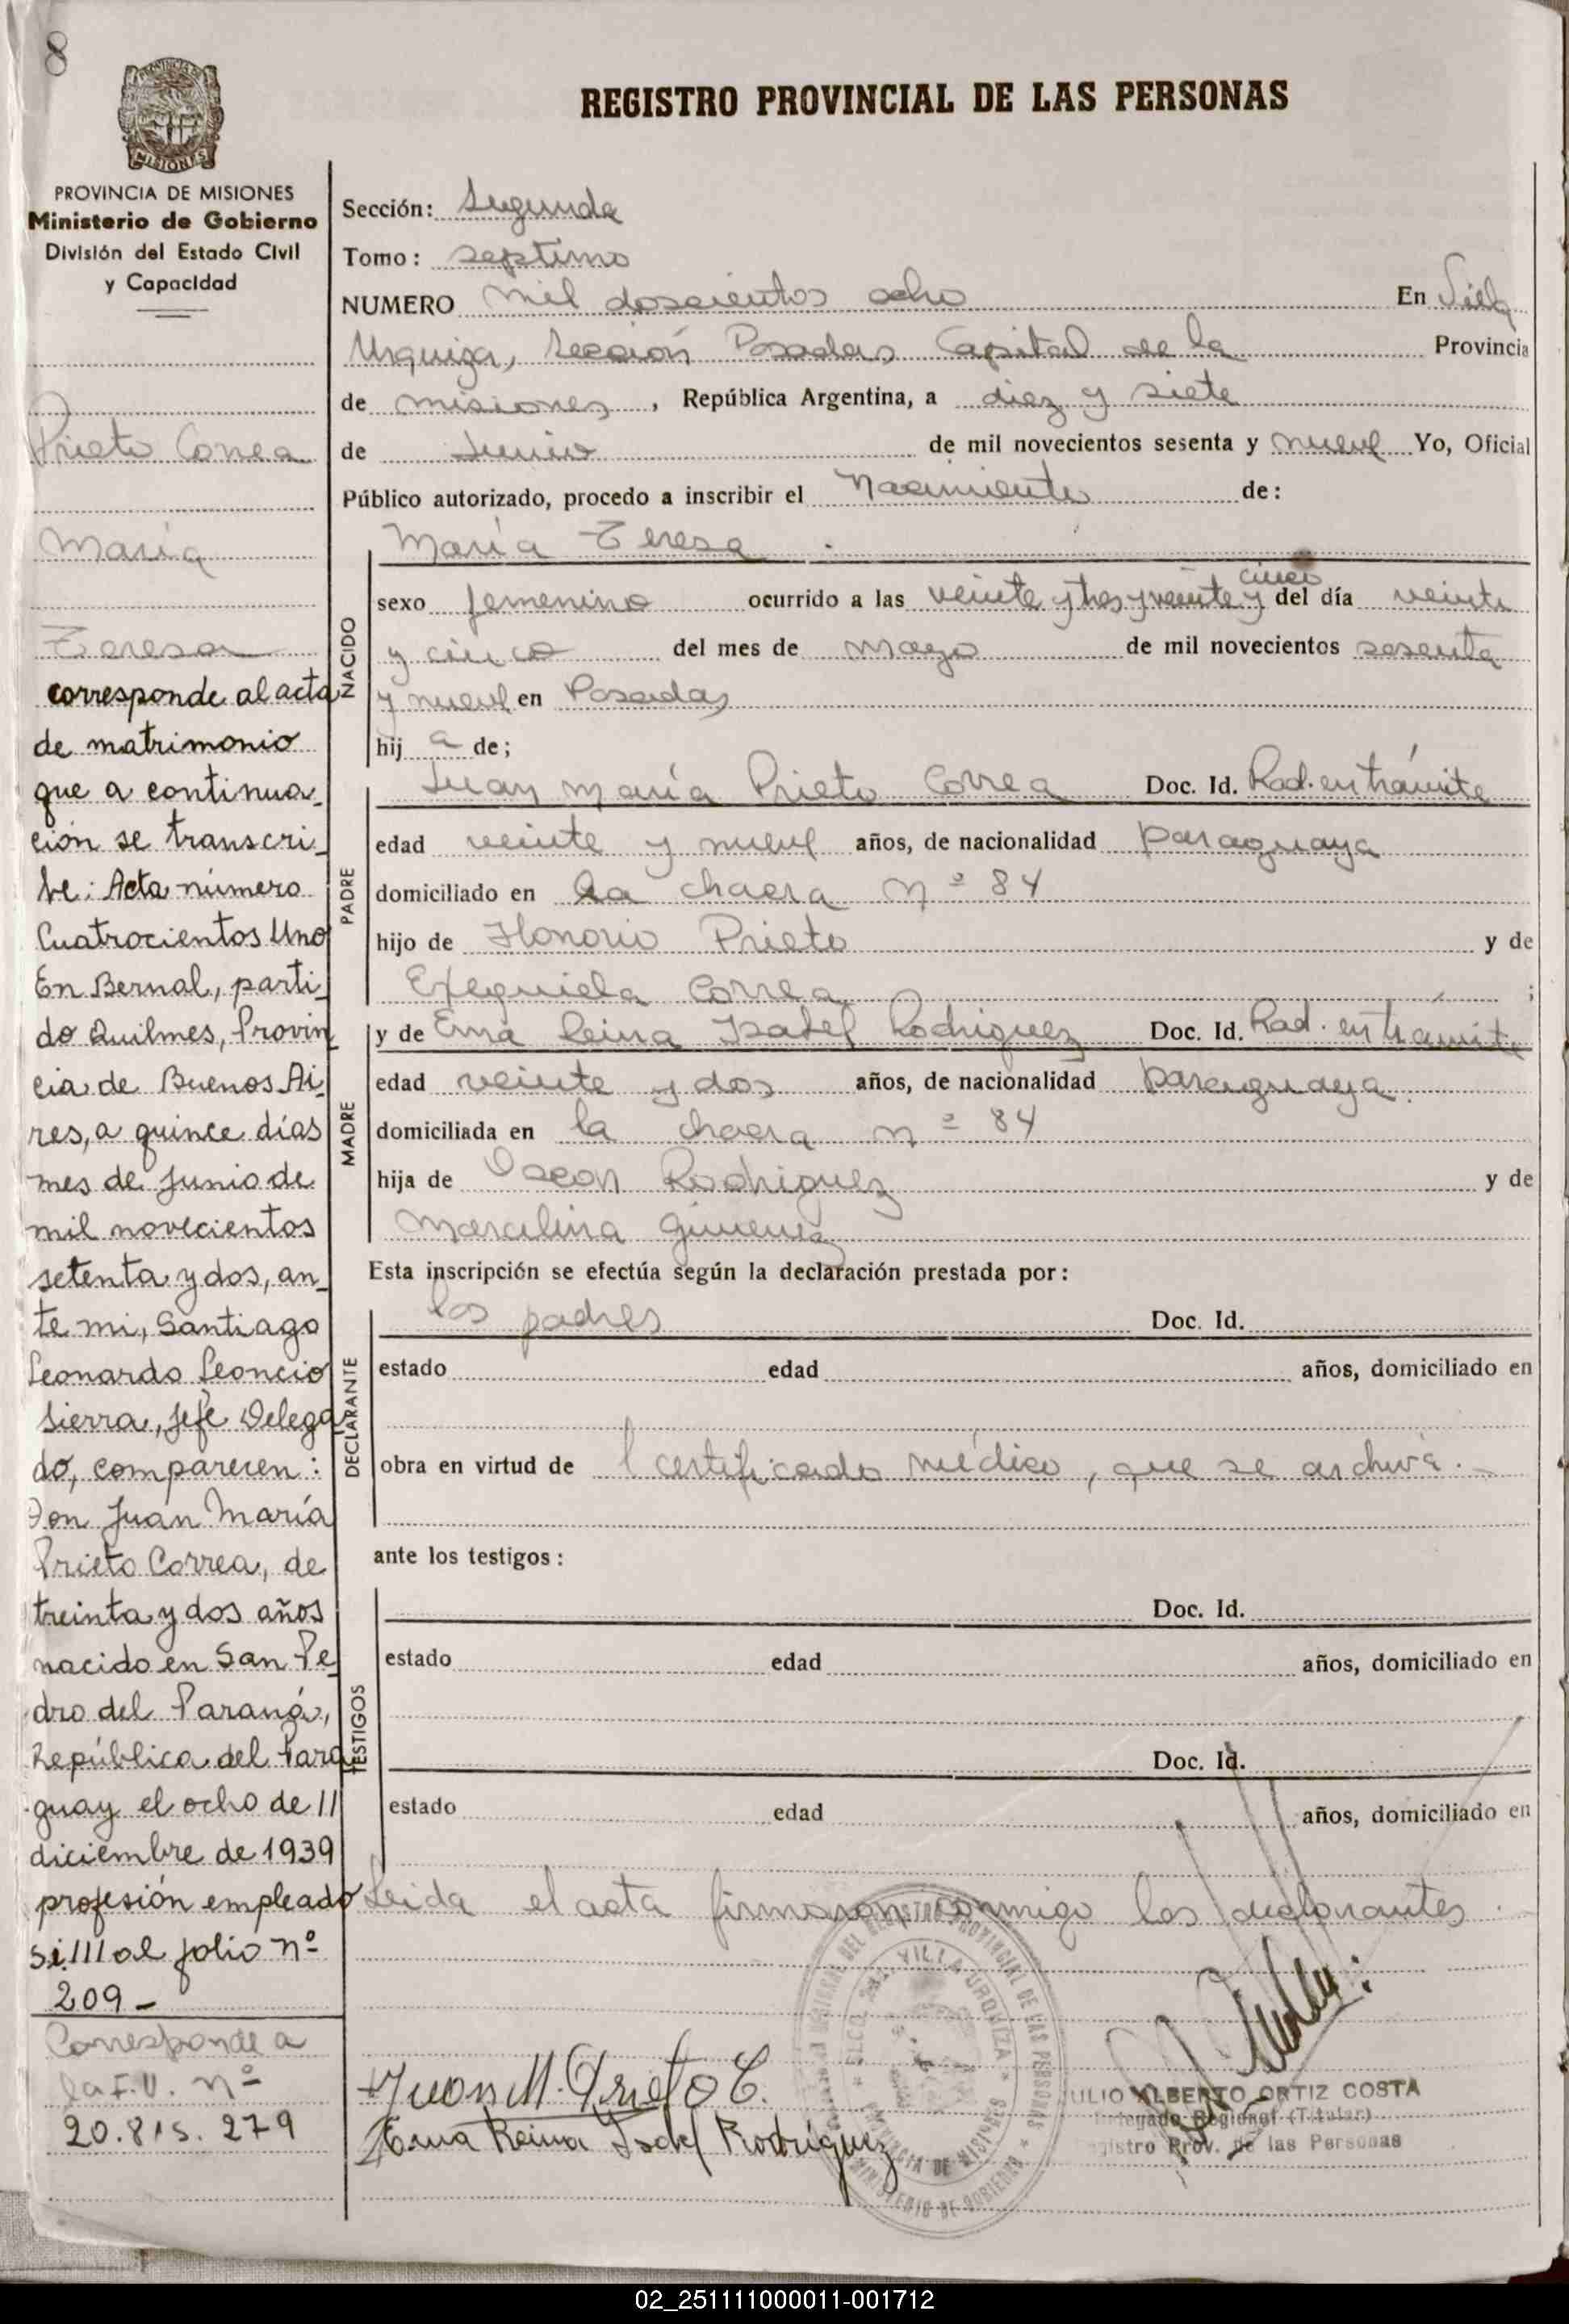 8
PROVINCIA DE MISIONES
Ministerio de Gobierno
División del Estado Civil
y Capacidad
Prieto Correa
María
Teresa
corresponde al acta
de matrimonio
que a continua_
ción se transcri_
be: Acta número
Cuatrocientos Uno
En Bernal, parti_
do Quilmes, Provin_
cia de Buenos Ai_
res, a quince días
mes de Junio de
mil novecientos
setenta y dos, an_
te mi, Santiago
Leonardo Leoncio
Sierra, Jefe Delega
do, comparecen:
Don Juan María
Prieto Correa, de
treinta y dos años
nacido en San Pe_
dro del Paraná,
República del Para
guay el ocho de //
diciembre de 1939
profesión empleado
si/// al folio nº
209-
Corresponde a
la F.U. nº
20.815.279
REGISTRO PROVINCIAL DE LAS PERSONAS
Sección: Segunda
Tomo: septimo
NUMERO mil doscientos ocho En Villa
Urquiza, Sección Posadas, Capital de la Provincia
de misiones, República Argentina, a diez y siete
de Junio de mil novecientos sesenta y nueve Yo, Oficial
Público autorizado, procedo a inscribir el Nacimiento de:
María Teresa.
NACIDO
sexo femenino ocurrido a las veinte y tres y veinte y cinco del día veinte
y cinco del mes de mayo de mil novecientos sesenta
y nueve en Posadas
hij a de;
PADRE
Juan María Prieto Correa Doc. Id. Rad. en trámite
edad veinte y nueve años, de nacionalidad paraguaya
domiciliado en la chacra nº 84
hijo de Honorio Prieto y de
Exequiela Correa ;
MADRE
y de Ema Reina Isabel Rodriguez Doc. Id. Rad. en trámite
edad veinte y dos años, de nacionalidad paraguaya.
domiciliada en la chacra nº 84
hija de Oscar Rodriguez y de
Marcelina Gimenez
Esta inscripción se efectúa según la declaración prestada por:
DECLARANTE
los padres Doc. Id.
estado edad años, domiciliado en
obra en virtud de l certificado médico, que se archiva.-
ante los testigos:
TESTIGOS
Doc. Id.
estado edad años, domiciliado en
Doc. Id.
estado edad años, domiciliado en
Leida el acta firmaron conmigo los declarantes.
Juan M. Prieto C.
Ema Reina Isabel Rodríguez
VILLA URQUIZA
PROVINCIA DE MISIONES
MINISTERIO DE GOBIERNO
REGISTRO PROVINCIAL DE LAS PERSONAS
ULIO ALBERTO ORTIZ COSTA
Delegado Regional (Titular)
gistro Prov. de las Personas
02_251111000011-001712